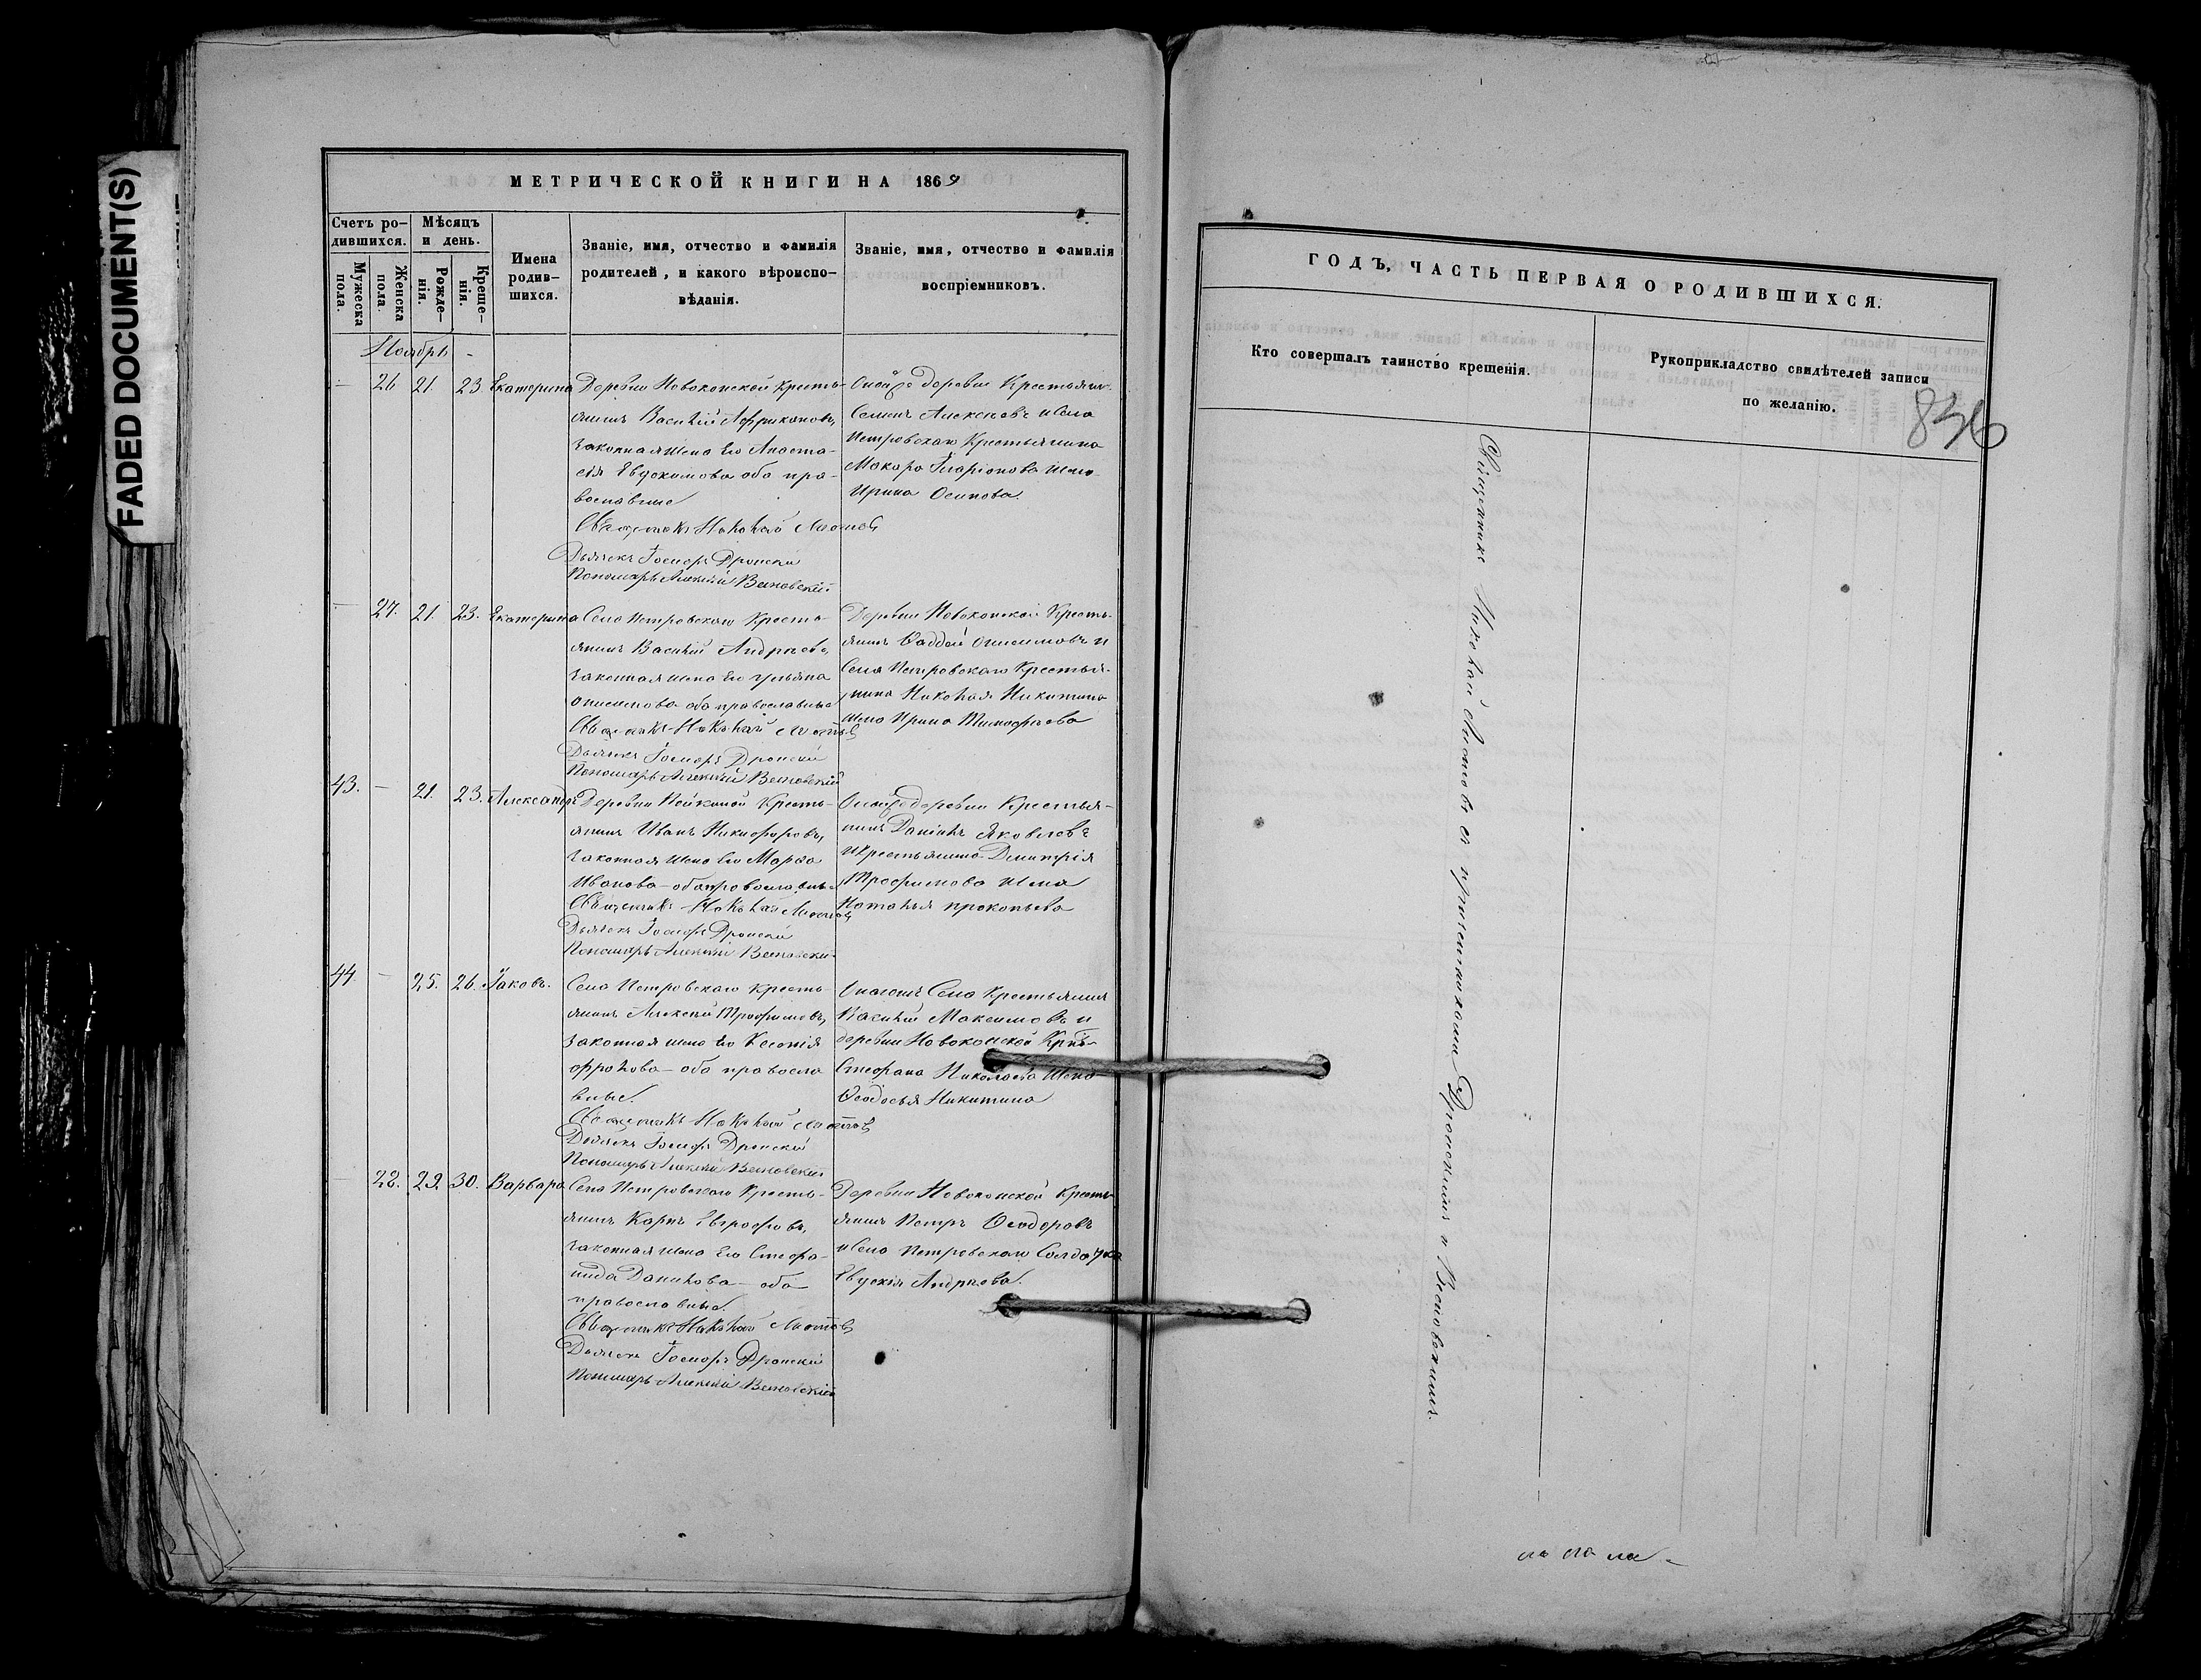 FADED DOCUMENT(S)
МЕТРИЧЕСКОЙ КНИГИ НА 1869
Счетъ ро-
дившихся.
Мѣсяцъ
и день.
Мужеска
пола.
Женска
пола.
Рожде-
нія.
Креще-
нія.
Имена
родив-
шихся.
Званіе, имя, отчество и фамилія
родителей, и какого вѣроиспо-
вѣданія.
Званіе, имя, отчество и фамилія
воспріемниковъ.
Ноябрь -
- 26 21. 23. Екатерина
Деревни Новоконской кресть-
янинъ Василій Аффрикановъ,
законная жена его Анаста-
сія Евдокимова оба пра-
вославные
Священникъ Николай Листовъ
Дьячекъ Іосифъ Дронскій
Пономарь Алексій Веновскій
Оной же деревни Крестьянинъ
Алексѣевъ и Села
Петровскаго Крестьянина
Макара Иларіонова жена
Ирина Осипова.
- 27. 21. 23. Екатерина
Села Петровскаго Кресть-
янинъ Василій Андреевъ,
законная жена его Ульяна
Онисимова оба православные
Священникъ Николай Листовъ
Дьячекъ Іосифъ Дронскій
Пономарь Алексій Веновскій
Деревни Новоконской Кресть-
янинъ Фаддей Онисимовъ и
Села Петровскаго Крестья-
нина Николая Никитина
жена Ирина Тимофѣева
43. - 21. 23. Александръ
Деревни Кресть-
янинъ Иванъ Никифоровъ,
законная жена его Марѳа
Иванова - оба православные
Священникъ Николай Листовъ
Дьячекъ Іосифъ Дронскій
Пономарь Алексій Веновскій
деревни Крестья-
нинъ Даніилъ Яковлевъ
и Крестьянина Димитрія
Трофимова жена
Наталья Прокопьева
44. - 25. 26. Іаковъ.
Села Петровскаго кресть-
янинъ Алексѣй Трофимовъ,
законная жена его Ксенія
Фролова - оба правосла
вные.
Священникъ Николай Листовъ
Дьячекъ Іосифъ Дронскій
Пономарь Алексій Веновскій
Села Крестьянинъ
Василій Максимовъ и
деревни Новоконской
Стефана Николаева жена
Ѳеодосья Никитина
- 28. 29. 30. Варвара
Села Петровскаго Кресть-
янинъ Карпъ
законная жена его Стефа-
нида Данилова - оба
православные.
Священникъ Николай Листовъ
Дьячекъ Іосифъ Дронскій
Пономарь Алексій Веновскій
Деревни Новоконской Кресть-
янинъ Петръ Ѳеодоровъ
и Села Петровскаго
Евдокія Андреева.
ГОДЪ, ЧАСТЬ ПЕРВАЯ О РОДИВШИХСЯ.
Кто совершалъ таинство крещенія.
Рукоприкладство свидѣтелей записи
по желанію.
836
Священникъ Николай Листовъ съ причетниками Дронскимъ и Веновскимъ.